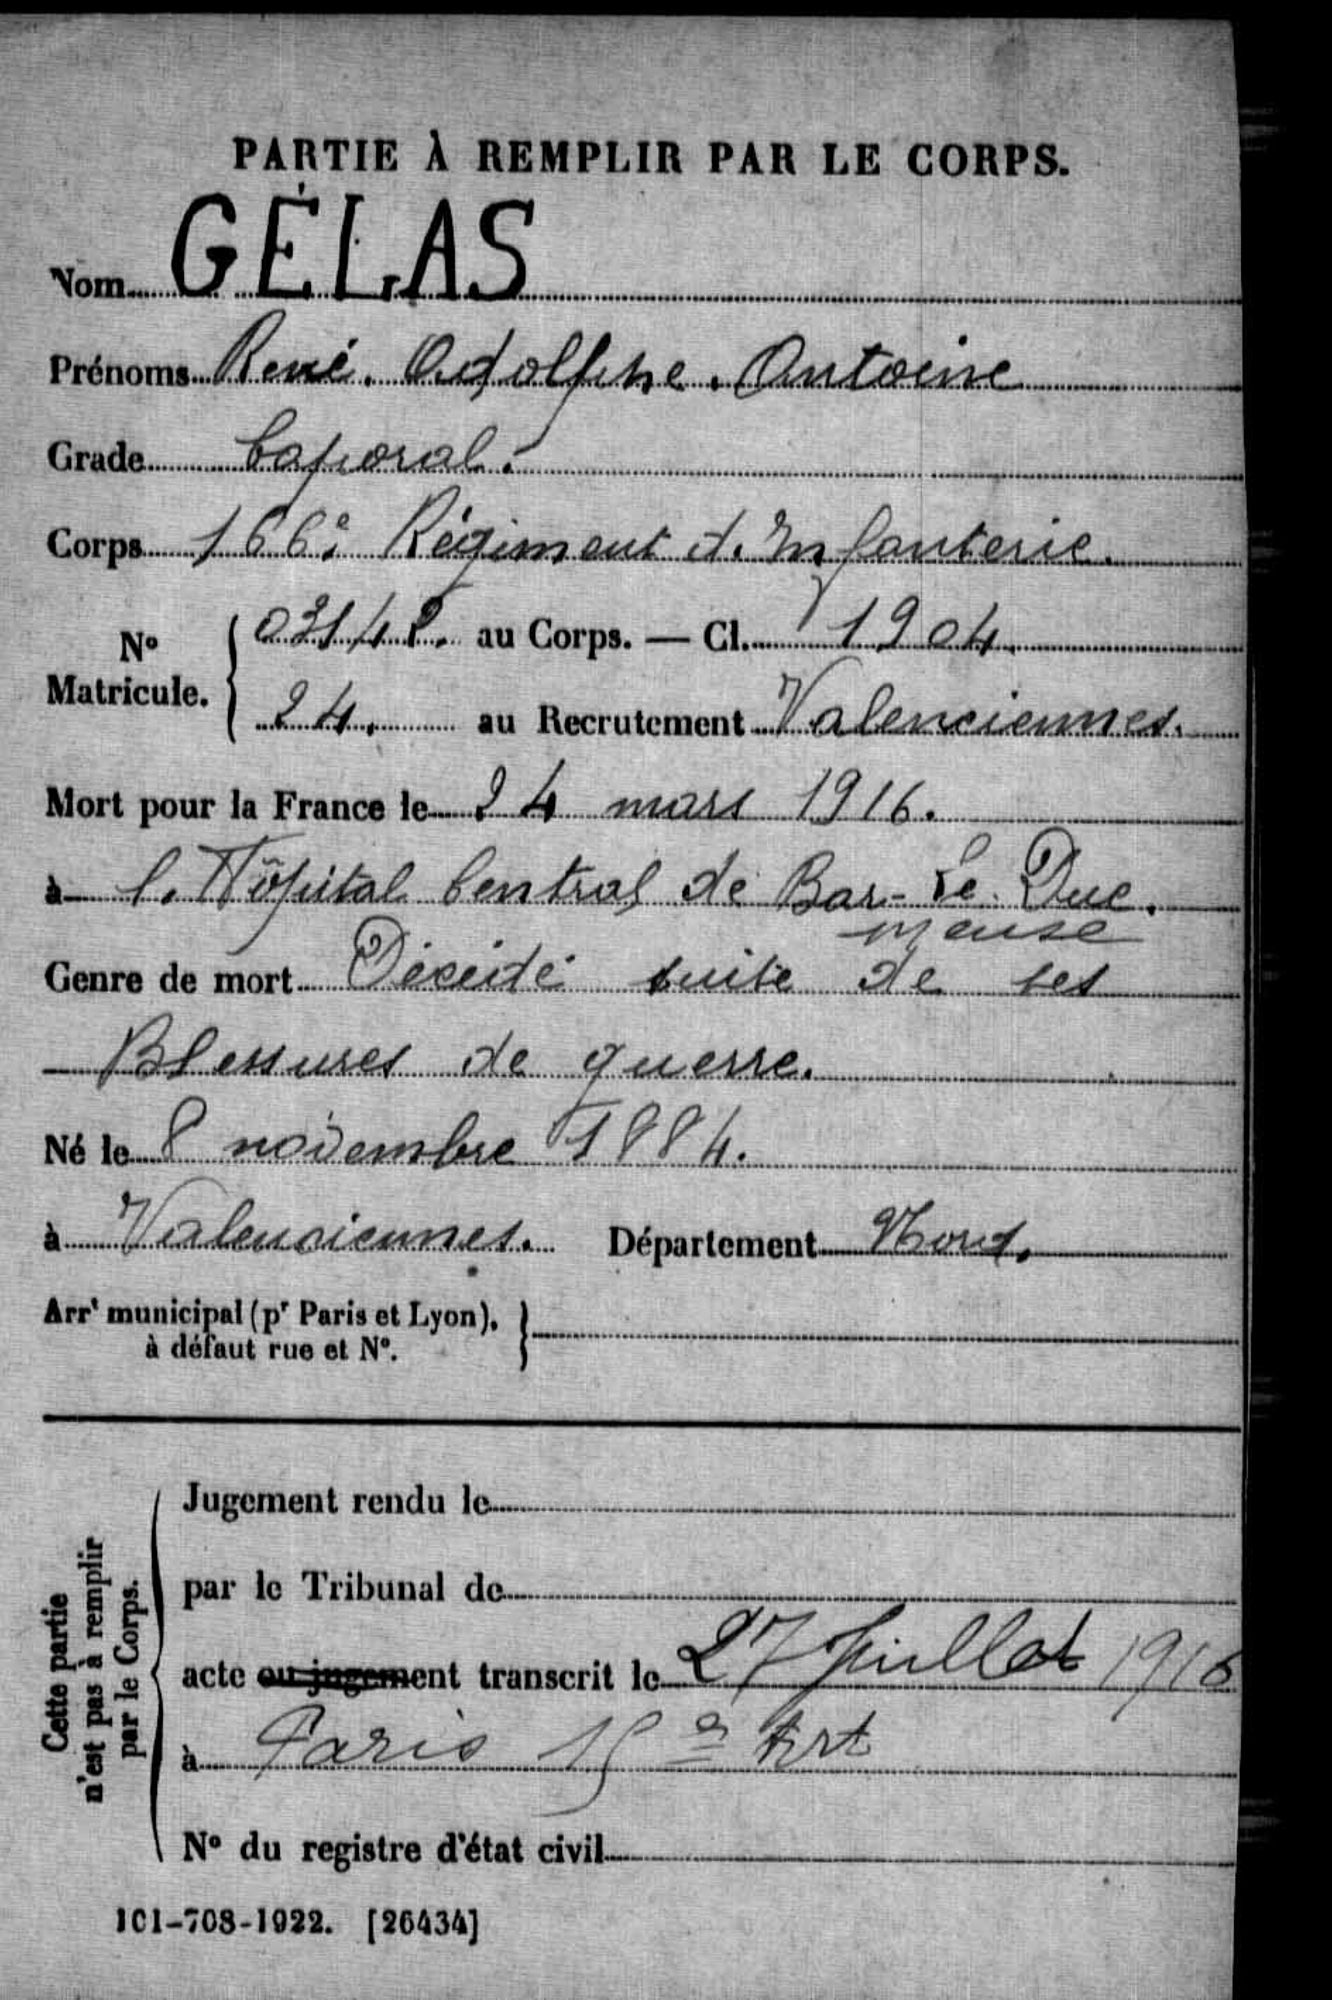 PARTIE À REMPLIR PAR LE CORPS.
Nom GÉLAS
Prénoms René. Adolphe. Antoine
Grade Caporal.
Corps 166e Régiment d. Infanterie.
N° Matricule. { 03148. au Corps. — Cl. 1904.
24. au Recrutement Valenciennes.
Mort pour la France le 24 mars 1916.
à l. Hôpital Central de Bar-Le-Duc.
Meuse
Genre de mort Décédé suite de ses
Blessures de guerre.
Né le 8 novembre 1884.
à Valenciennes. Département Nord.
Arrt municipal (pr Paris et Lyon), à défaut rue et N°. }
Jugement rendu le
par le Tribunal de
acte ou jugement transcrit le 27 Juillet 1916
à Paris 15e Art
N° du registre d'état civil
Cette partie
n'est pas à remplir
par le Corps.
101-708-1922. [26434]